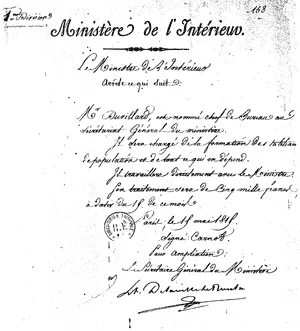 168
1re Division
Ministère de l'Intérieur.
Le Ministre de l'Intérieur
Arrête ce qui suit.
Mr Duvillard, est nommé chef de Bureau au
Secrétariat Général du ministère.
Il sera chargé de la formation des tables
de population et de tout ce qui en dépend.
Il travaillera directement avec le Ministre.
Son traitement sera de Cinq mille francs
à dater du 15 de ce mois.
Paris, le 15 mai 1815.
Signé: Carnot.
Pour ampliation:
Le Secrétaire Général du Ministère